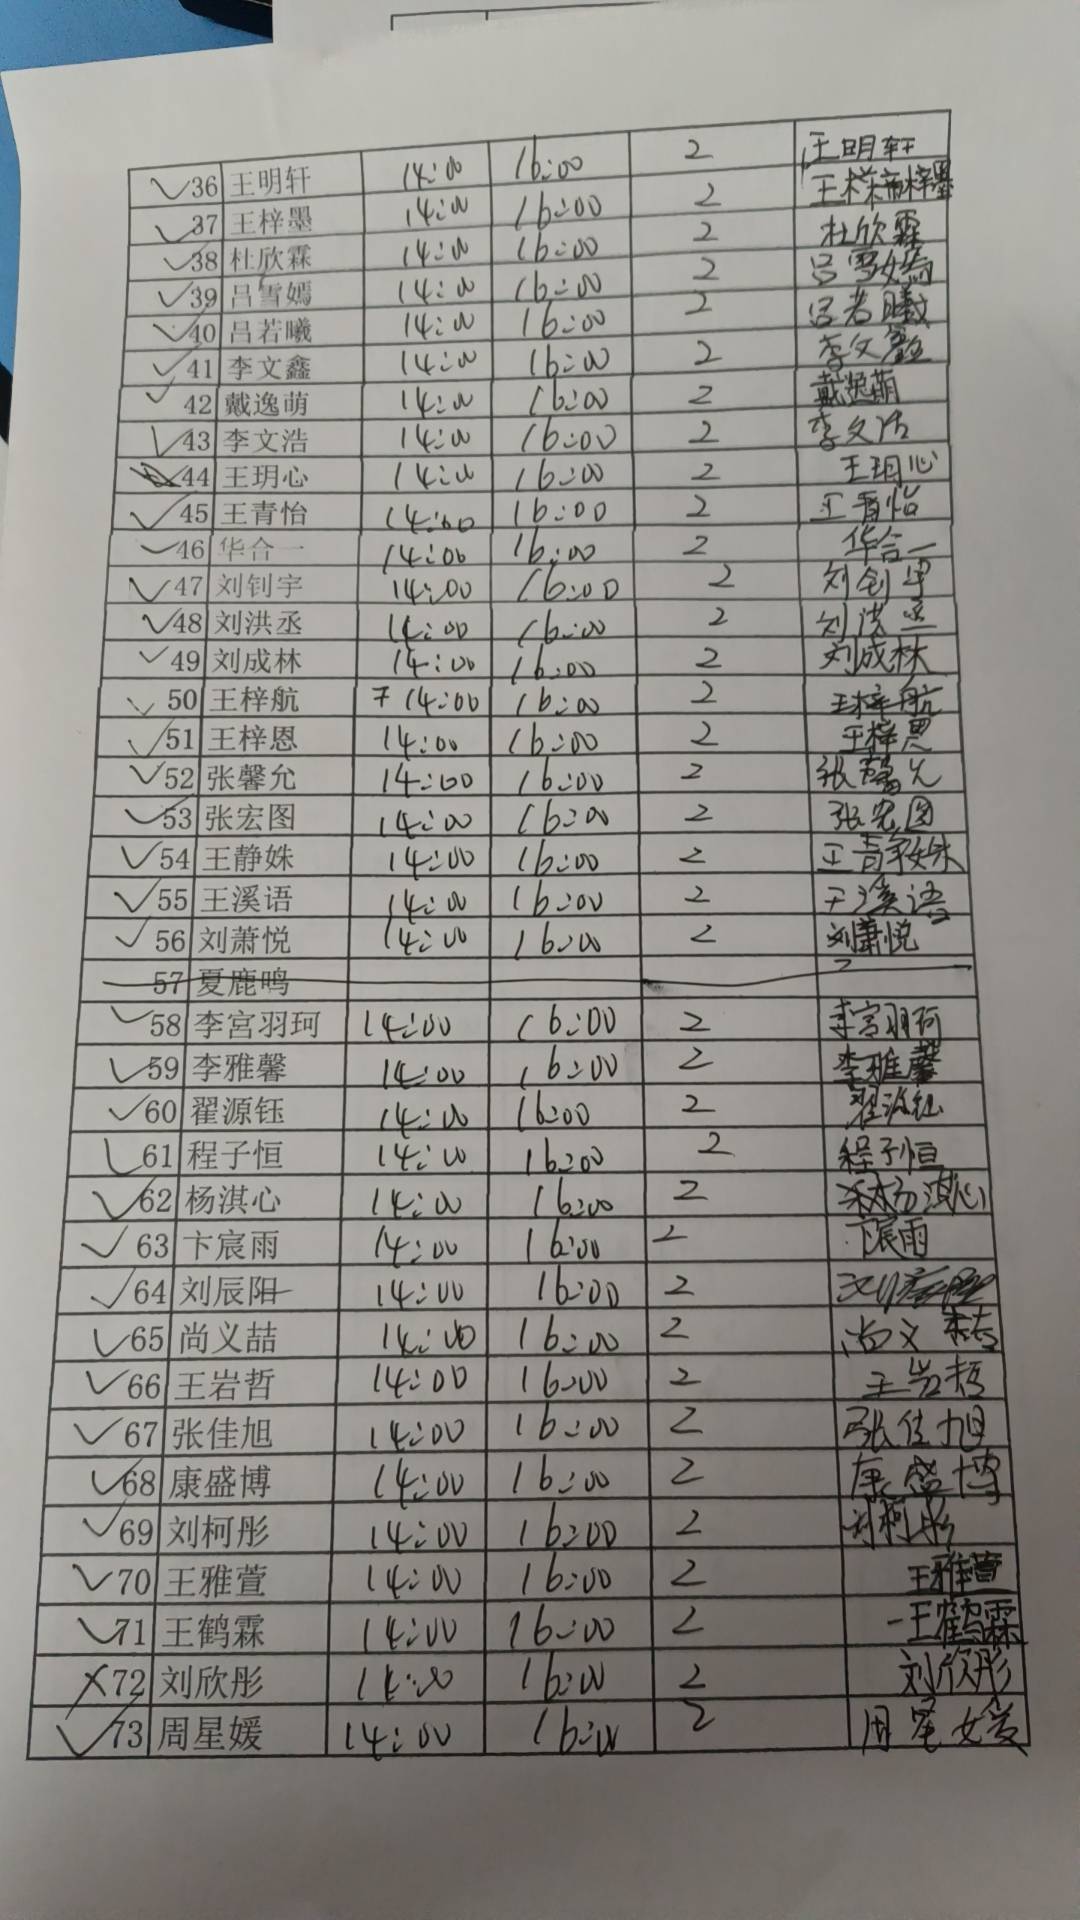 36 王明轩 14:00 16:00 2 王明轩
37 王梓墨 14:00 16:00 2 王 梓墨
38 杜欣霖 14:00 16:00 2 杜欣霖
39 吕雪嫣 14:00 16:00 2 吕雪嫣
40 吕若曦 14:00 16:00 2 吕若曦
41 李文鑫 14:00 16:00 2 李文鑫
42 戴逸萌 14:00 16:00 2 戴逸萌
43 李文浩 14:00 16:00 2 李文浩
44 王玥心 14:00 16:00 2 王玥心
45 王青怡 14:00 16:00 2 王青怡
46 华合一 14:00 16:00 2 华合一
47 刘钊宇 14:00 16:00 2 刘钊宇
48 刘洪丞 14:00 16:00 2 刘洪丞
49 刘成林 14:00 16:00 2 刘成林
50 王梓航 14:00 16:00 2 王梓航
51 王梓恩 14:00 16:00 2 王梓恩
52 张馨允 14:00 16:00 2 张馨允
53 张宏图 14:00 16:00 2 张宏图
54 王静姝 14:00 16:00 2 王静姝
55 王溪语 14:00 16:00 2 王溪语
56 刘萧悦 14:00 16:00 2 刘萧悦
57 夏鹿鸣
58 李宫羽珂 14:00 16:00 2 李宫羽珂
59 李雅馨 14:00 16:00 2 李雅馨
60 翟源钰 14:00 16:00 2 翟源钰
61 程子恒 14:00 16:00 2 程子恒
62 杨淇心 14:00 16:00 2 杨淇心
63 卞宸雨 14:00 16:00 2 卞宸雨
64 刘辰阳 14:00 16:00 2 刘
65 尚义喆 14:00 16:00 2 尚义喆
66 王岩哲 14:00 16:00 2 王岩哲
67 张佳旭 14:00 16:00 2 张佳旭
68 康盛博 14:00 16:00 2 康盛博
69 刘柯彤 14:00 16:00 2 刘柯彤
70 王雅萱 14:00 16:00 2 王雅萱
71 王鹤霖 14:00 16:00 2 王鹤霖
72 刘欣彤 14:00 16:00 2 刘欣彤
73 周星媛 14:00 16:00 2 周星媛